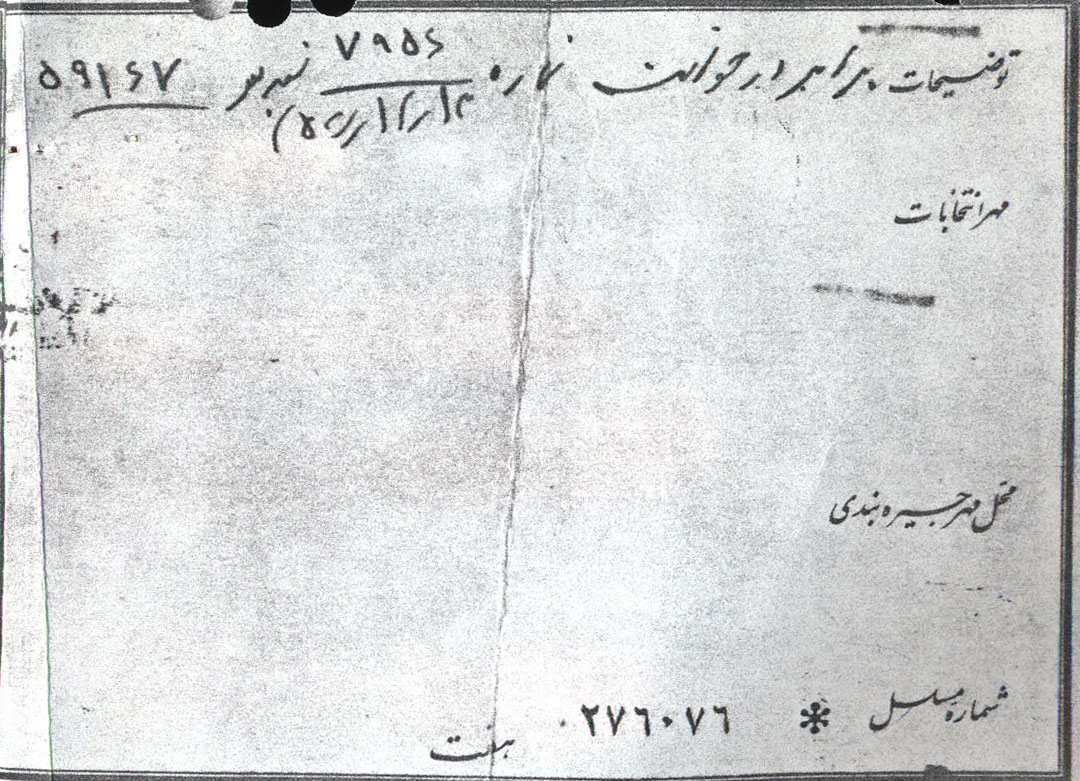 توضیحات. برابر درخواست شماره ۷۹۵۶
۵۹۱۶۷
مهر انتخابات
محل مهر جیره بندی
شماره مسلسل * ۲۷۶۰۷۶
هفت